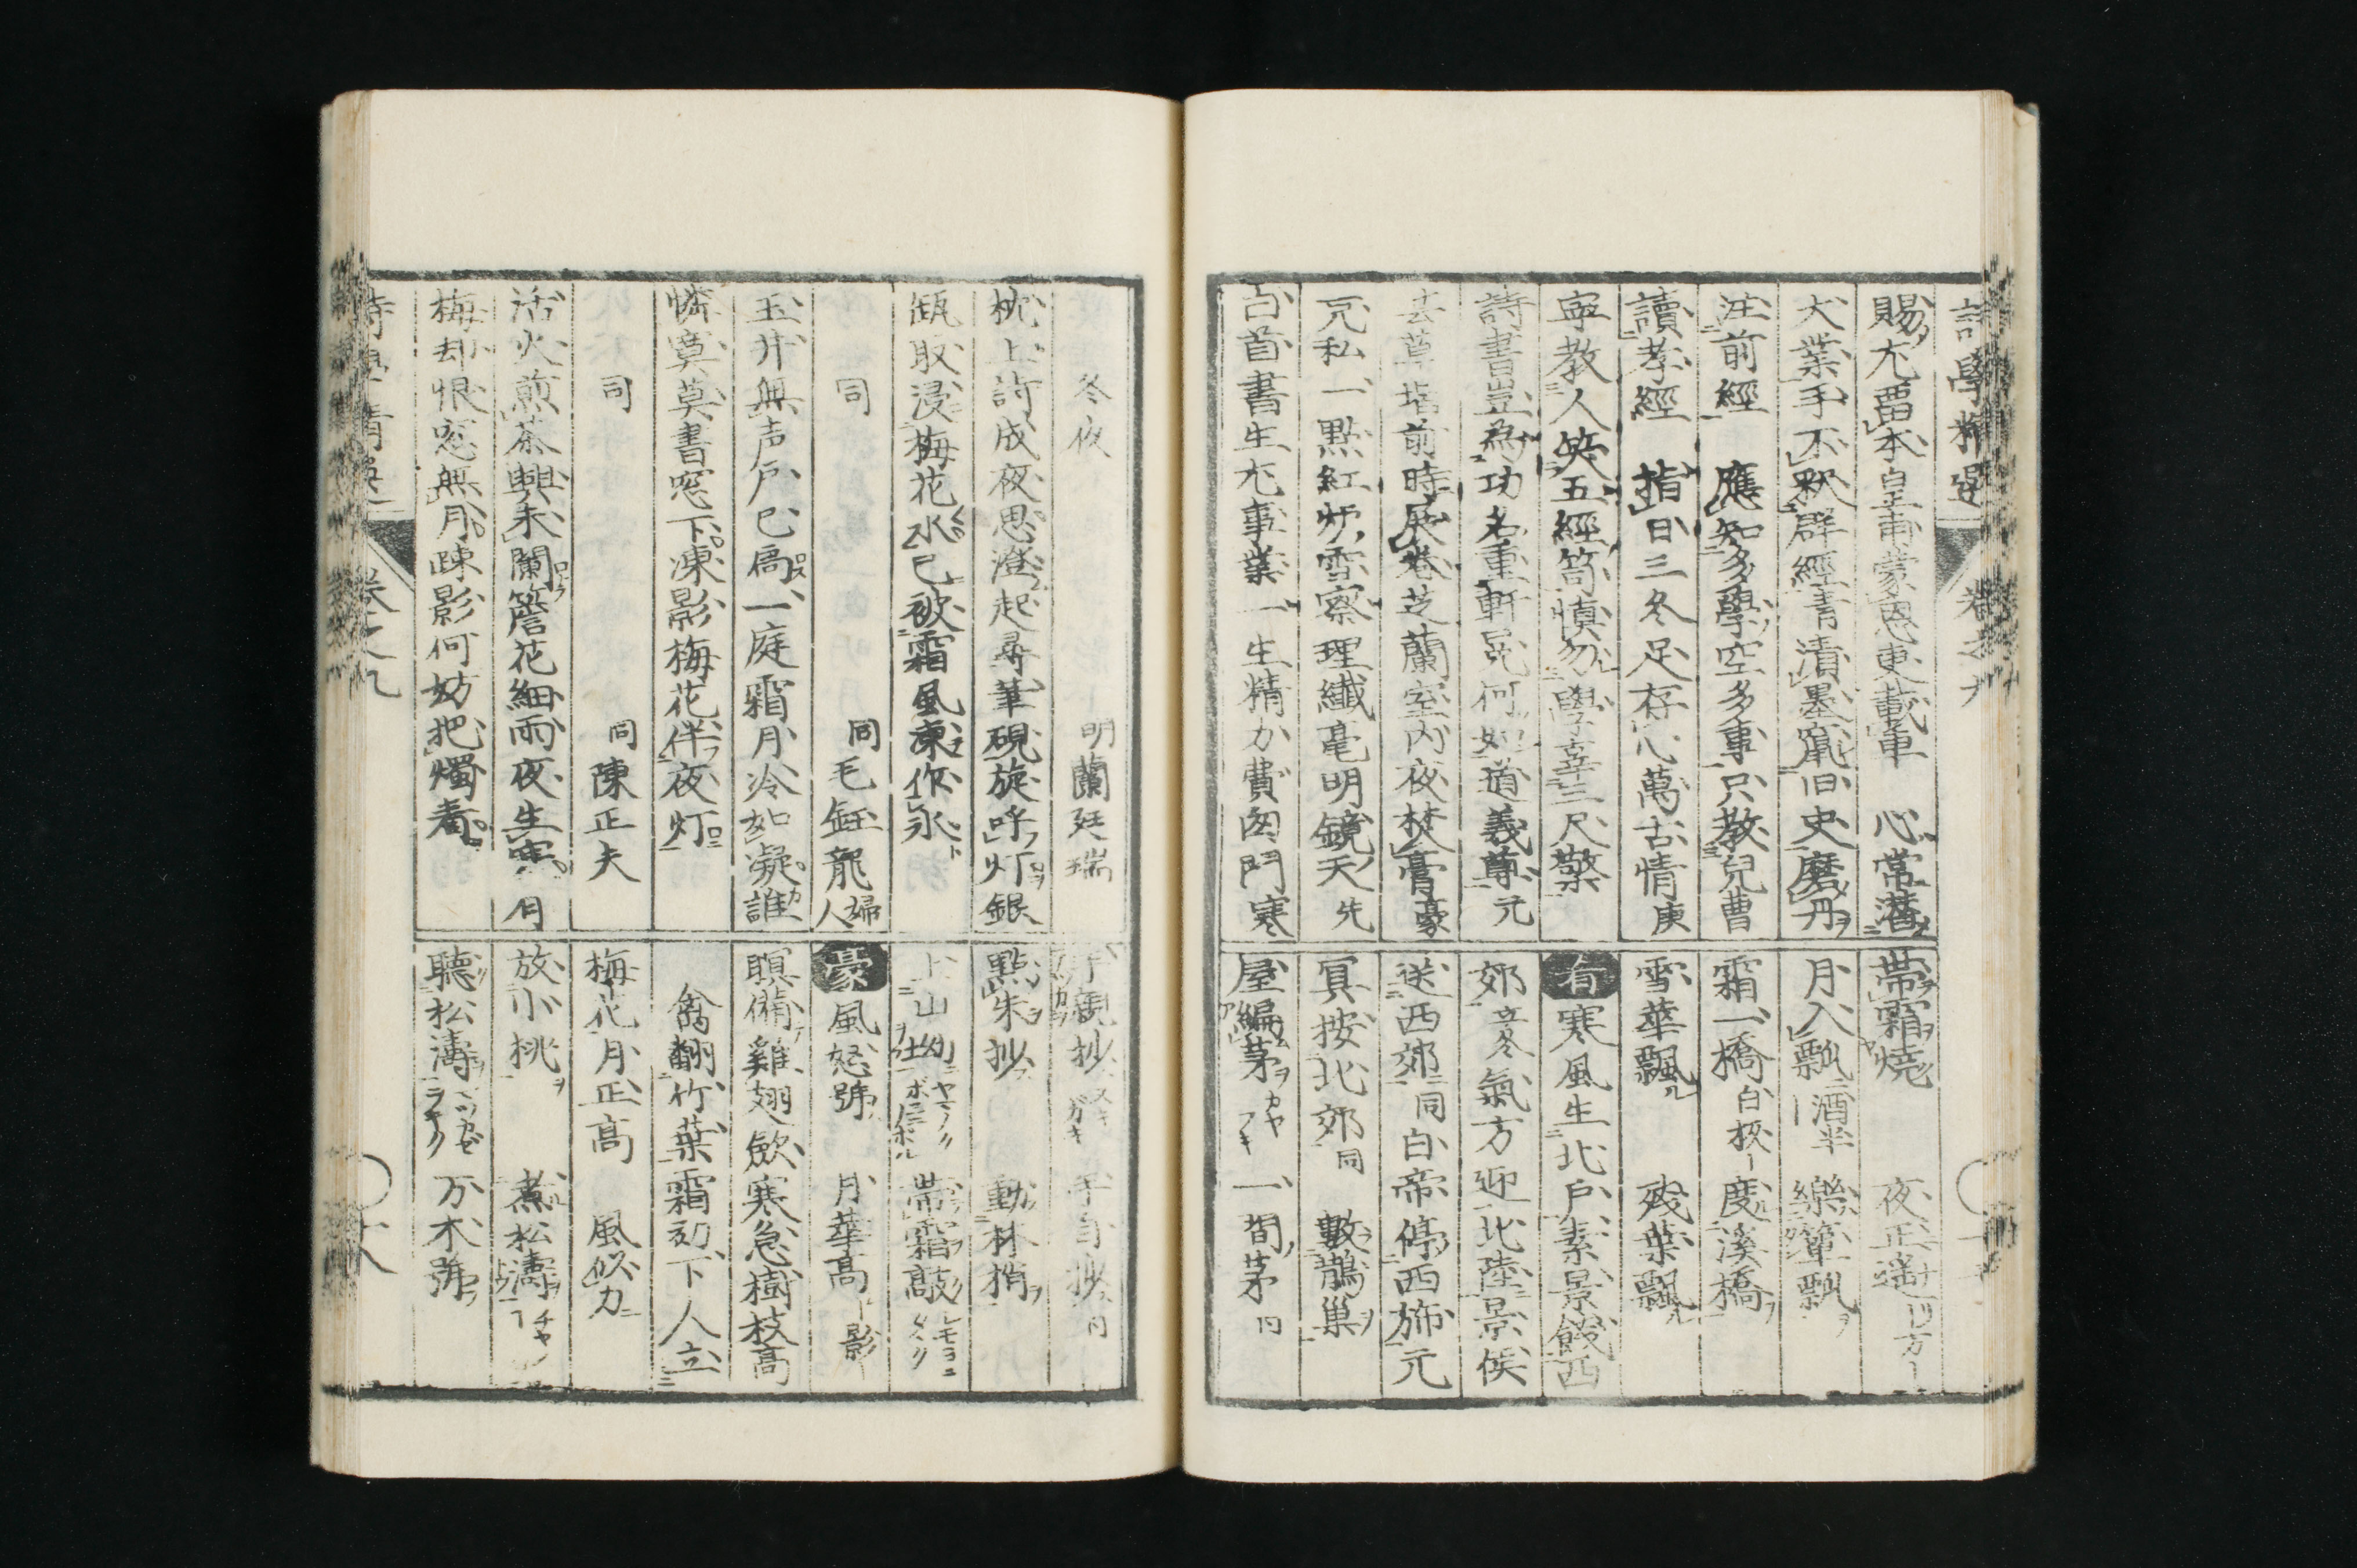 賜尤畱本皇甫蒙恩更載車　心常潛
大業手不釈群經青漬墨窺旧史磨丹
注前經　應知多學空多事只教兒曹
讀孝經　指日三冬足存心萬古情庚
寧教人笑五經笥慎勿學幸三尺檠
詩書豈為功名重軒冕何如道義尊元
去草堦前時展卷芝蘭室內夜焚膏豪
克私一點紅炉雪察理纖毫明鏡天先
白首書生尤事業一生精力費函門寒
帶霜燒　夜正遥
月入瓢酒半　樂簞瓢
霜一橋白板　度溪橋
雪華飄　殘葉飄
肴寒風生北戶素景餞西
郊立冬氣方迎北陸景候
送西郊同白帝停西旆元
冥按北郊同　數鵲巢
屋編茅カヤフキ　一間茅同
冬夜　明蘭廷瑞
枕上詩成夜思澄起尋筆硯旋呼灯銀
瓶取浸梅花水已被霜風凍作氷
同　同毛鈺龍婦人
玉井無声戶已扃一庭霜月冷如凝誰
憐寞莫書窓下凍影梅花伴夜灯
同　同陳正夫
活火煎茶興未闌簷花細雨夜生寒月
梅却恨窓無月疎影何妨把燭看
手自抄同
點朱抄　動林梢
上山幼　帶霜敲
豪風怒號　月華高影
瞑備雞翅斂寒急樹枝高
禽翻竹葉霜初下人立
梅花月正高　風似刀
放小桃　煮松濤チヤ
聽松濤　万木號
詩學精選　卷之九